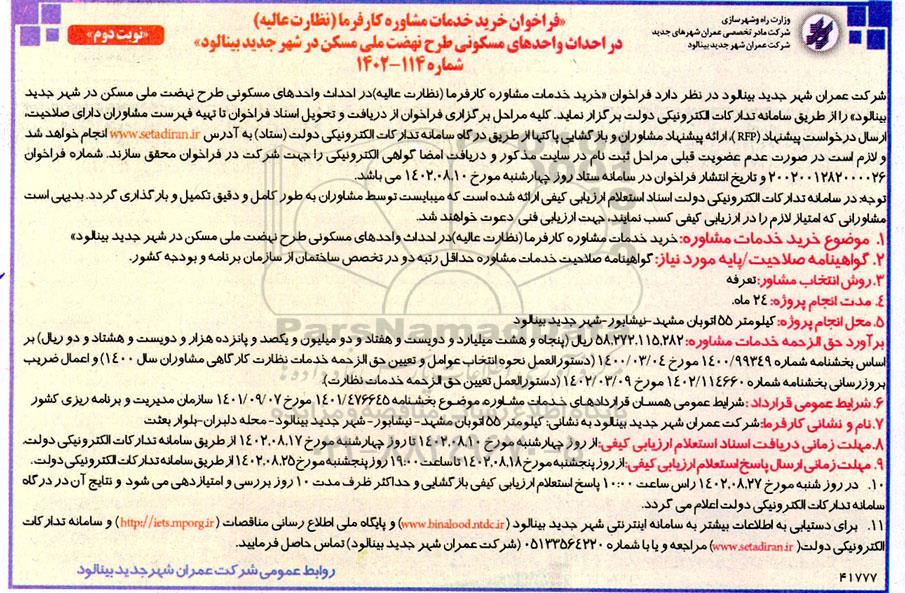 وزارت راه و شهرسازی
شرکت مادر تخصصی عمران شهرهای جدید
شرکت عمران شهر جدید بینالود
«فراخوان خرید خدمات مشاوره کارفرما (نظارت عالیه)
در احداث واحدهای مسکونی طرح نهضت ملی مسکن در شهر جدید بینالود»
شماره ۱۱۴-۱۴۰۲
«نوبت دوم»
شرکت عمران شهر جدید بینالود در نظر دارد فراخوان «خرید خدمات مشاوره کارفرما (نظارت عالیه)در احداث واحدهای مسکونی طرح نهضت ملی مسکن در شهر جدید
بینالود» را از طریق سامانه تدارکات الکترونیکی دولت برگزار نماید. کلیه مراحل برگزاری فراخوان از دریافت و تحویل اسناد فراخوان تا تهیه فهرست مشاوران دارای صلاحیت،
ارسال درخواست پیشنهاد (RFP)، ارائه پیشنهاد مشاوران و بازگشایی پاکتها از طریق درگاه سامانه تدارکات الکترونیکی دولت (ستاد) به آدرس www.setadiran.ir انجام خواهد شد
و لازم است در صورت عدم عضویت قبلی مراحل ثبت نام در سایت مذکور و دریافت امضا گواهی الکترونیکی را جهت شرکت در فراخوان محقق سازند. شماره فراخوان
۲۰۰۲۰۰۱۲۸۲۰۰۰۰۲۶ و تاریخ انتشار فراخوان در سامانه ستاد روز چهارشنبه مورخ ۱۴۰۲.۰۸.۱۰ می باشد.
توجه: در سامانه تدارکات الکترونیکی دولت اسناد استعلام ارزیابی کیفی ارائه شده است که میبایست توسط مشاوران به طور کامل و دقیق تکمیل و بارگذاری گردد. بدیهی است
مشاورانی که امتیاز لازم را در ارزیابی کیفی کسب نمایند، جهت ارزیابی فنی دعوت خواهند شد.
۱. موضوع خرید خدمات مشاوره: خرید خدمات مشاوره کارفرما (نظارت عالیه)در احداث واحدهای مسکونی طرح نهضت ملی مسکن در شهر جدید بینالود»
۲. گواهینامه صلاحیت/پایه مورد نیاز: گواهینامه صلاحیت خدمات مشاوره حداقل رتبه دو در تخصص ساختمان از سازمان برنامه و بودجه کشور.
۳. روش انتخاب مشاور: تعرفه
۴. مدت انجام پروژه: ۲۴ ماه.
۵. محل انجام پروژه: کیلومتر ۵۵ اتوبان مشهد-نیشابور-شهر جدید بینالود
برآورد حق الزحمه خدمات مشاوره: ۵۸.۲۷۲.۱۱۵.۲۸۲ ریال (پنجاه و هشت میلیارد و دویست و هفتاد و دو میلیون و یکصد و پانزده هزار و دویست و هشتاد و دو ریال) بر
اساس بخشنامه شماره ۱۴۰۰/۹۹۳۴۹ مورخ ۱۴۰۰/۰۳/۰۴ (دستورالعمل نحوه انتخاب عوامل و تعیین حق الزحمه خدمات نظارت کارگاهی مشاوران سال ۱۴۰۰) و اعمال ضریب
بروزرسانی بخشنامه شماره ۱۴۰۲/۱۱۴۶۶۰ مورخ ۱۴۰۲/۰۳/۰۹ (دستورالعمل تعیین حق الزحمه خدمات نظارت).
۶. شرایط عمومی قرارداد: شرایط عمومی همسان قراردادهای خدمات مشاوره، موضوع بخشنامه ۱۴۰۱/۴۷۶۶۴۵ مورخ ۱۴۰۱/۰۹/۰۷ سازمان مدیریت و برنامه ریزی کشور
۷. نام و نشانی کارفرما: شرکت عمران شهر جدید بینالود به نشانی: کیلومتر ۵۵ اتوبان مشهد - نیشابور - شهر جدید بینالود - محله دلبران-بلوار بعثت
۸. مهلت زمانی دریافت اسناد استعلام ارزیابی کیفی: از روز چهارشنبه مورخ ۱۴۰۲.۰۸.۱۰ تا روز چهارشنبه مورخ ۱۴۰۲.۰۸.۱۷ از طریق سامانه تدارکات الکترونیکی دولت.
۹. مهلت زمانی ارسال پاسخ استعلام ارزیابی کیفی: از روز پنجشنبه مورخ ۱۴۰۲.۰۸.۱۸ تا ساعت ۱۹:۰۰ روز پنجشنبه مورخ ۱۴۰۲.۰۸.۲۵ از طریق سامانه تدارکات الکترونیکی دولت.
۱۰. در روز شنبه مورخ ۱۴۰۲.۰۸.۲۷ راس ساعت ۱۰:۰۰ پاسخ استعلام ارزیابی کیفی بازگشایی و حداکثر ظرف مدت ۱۰ روز بررسی و امتیازدهی می شود و نتایج آن در درگاه
سامانه تدارکات الکترونیکی دولت اعلام می گردد.
۱۱. برای دستیابی به اطلاعات بیشتر به سامانه اینترنتی شهر جدید بینالود (www.binalood.ntdc.ir) و پایگاه ملی اطلاع رسانی مناقصات (http://iets.mporg.ir) و سامانه تدارکات
الکترونیکی دولت( www.setadiran.ir) مراجعه و یا با شماره ۰۵۱۳۳۵۶۴۲۲۰ (شرکت عمران شهر جدید بینالود) تماس حاصل فرمایید.
روابط عمومی شرکت عمران شهر جدید بینالود
۴۱۷۷۷
ParsNamadData